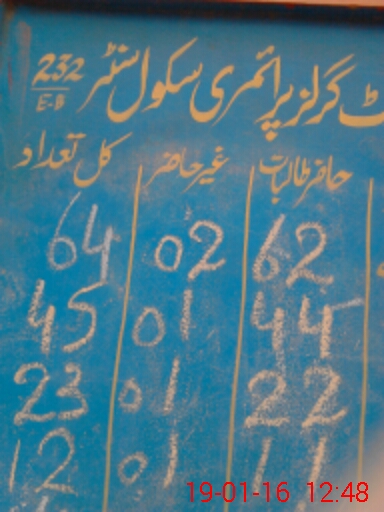 گرلز پرائمری سکول سنٹر 232
E-B
حاضر طالبات غیر حاضر کل تعداد
62 02 64
44 01 45
22 01 23
11 01 12
19-01-16 12:48